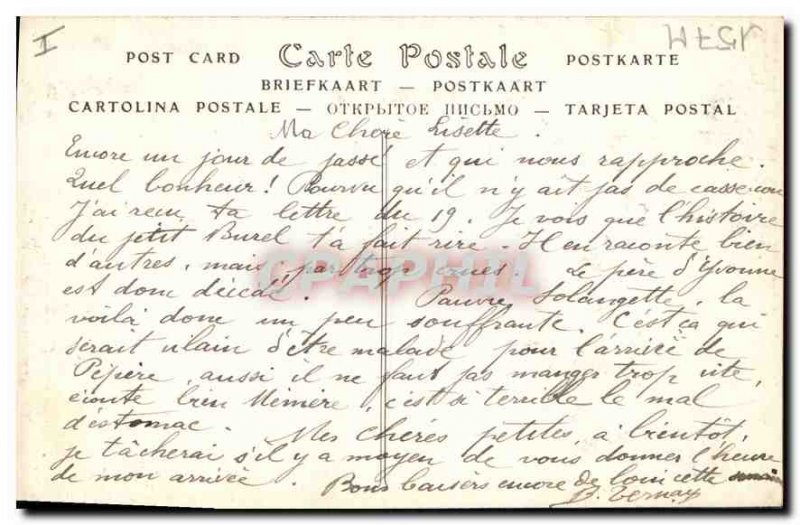 I
1574
POST CARD Carte Postale POSTKARTE
BRIEFKAART — POSTKAART
CARTOLINA POSTALE — ОТКРЫТОЕ ПИСЬМО — TARJETA POSTAL
Ma chère Lisette.
Encore un jour de passé! et qui nous rapproche.
Quel bonheur! Pourvu qu'il n'y ait pas de casse-cou
J'ai reçu ta lettre du 19. Je vois que l'histoire
du petit Burel t'a fait rire. Il en raconte bien
d'autres, mais, par trop crues. Le père d'Yvonne
est donc décédé. Pauvre Solangette, la
voilà donc un peu souffrante. C'est ça qui
serait vilain d'être malade pour l'arrivée de
Pépère, aussi il ne faut pas manger trop vite,
écoute bien Mémère, c'est si terrible le mal
d'estomac. Mes chères petites, à bientôt,
je tâcherai s'il y a moyen de vous donner l'heure
de mon arrivée. Bons baisers encore de loin cette
CPAPHIL